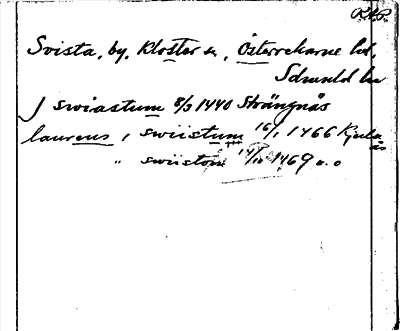 R.A.P.
Svista, by, Kloster sn, Österrekarne hd,
Sdmnld län
J swiastum 8/3 1440 Strängnäs
laurens i swiistum 16/1 1466 Kjula
ås
" swiistom 1469 o. o